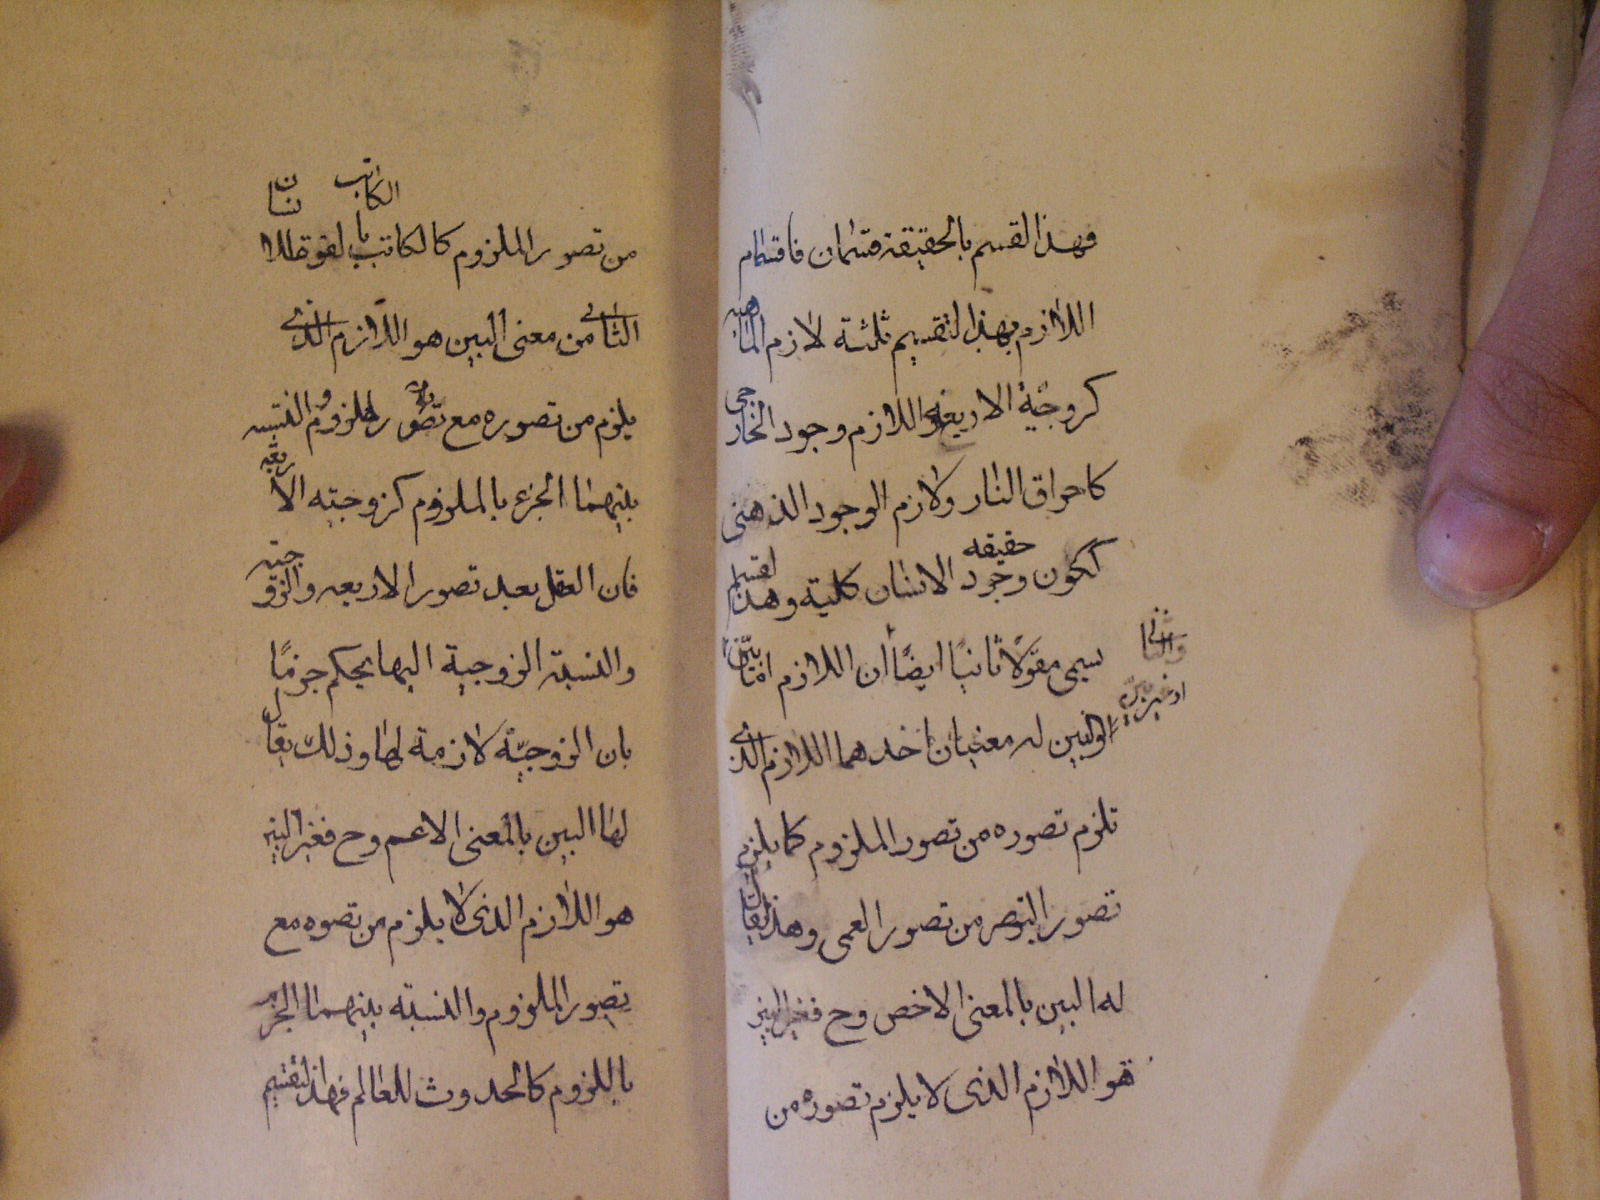 فهذا القسم بالحقيقة قسمان فاقسام
اللازم بهذا التقسيم ثلثة لازم الماهية
كزوجية الاربعة واللازم وجود الخارجى
كاحراق النار ولازم الوجود الذهنى
ككون وجود حقيقه الانسان كلية وهذا القسم
يسمى معقولًا ثانيا ايضًا أن اللازم اما بيّن
والثانى
او غير بين
والبين له معنيان احدهما اللازم الذى
تلزم تصوره من تصور الملزوم كما يلزم
تصور البصر من تصور العمى وهذا يقال
له البين بالمعنى الاخص وح فغير البين
هو اللازم الذى لا يلزم تصوره من
من تصور الملزوم كالكاتب بالقوة للانسان
الكاتب
الثانى من معنى البين هو اللازم الذى
يلزم من تصوره مع تصور الملزوم والنسبه
بينهما الجزم بالملزوم كزوجيته الاربعه
فان العقل بعد تصور الاربعه والزوجيه
والنسبة الزوجية اليها يحكم جزمًا
بان الزوجيّة لازمة لها وذلك يقال
لها البين بالمعنى الاعم وح فغير البين
هو اللازم الذى لا يلزم من تصوه مع
تصور الملزوم والنسبته بينهما الجزم
باللزوم كالحدوث للعالم فهذا التقسيم